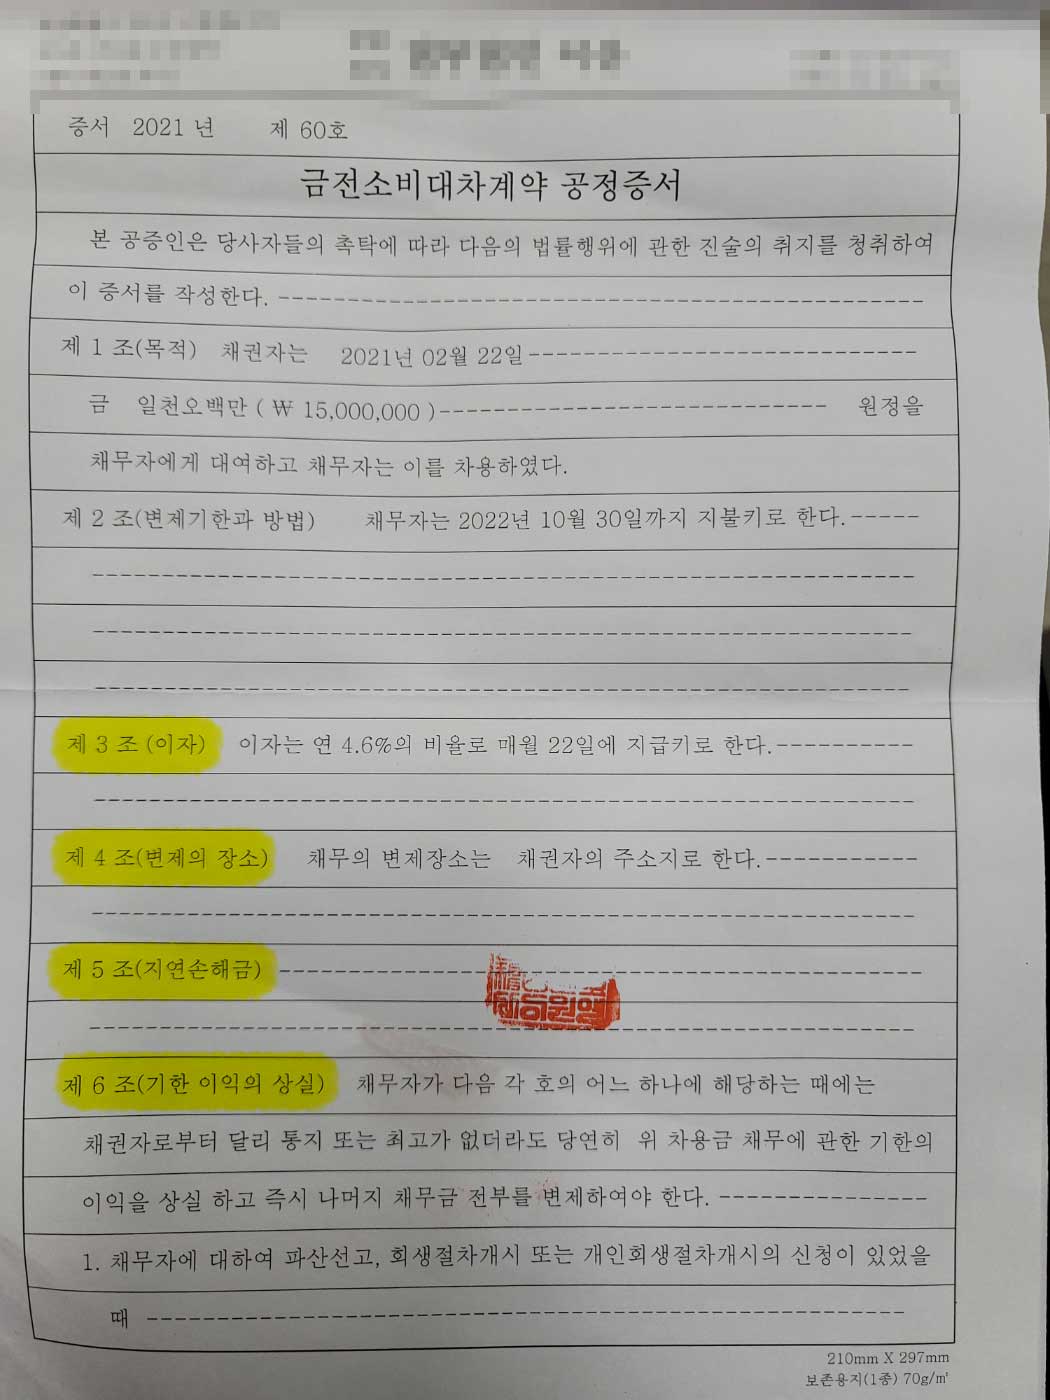 증서 2021 년 제 60호
금전소비대차계약 공정증서
본 공증인은 당사자들의 촉탁에 따라 다음의 법률행위에 관한 진술의 취지를 청취하여
이 증서를 작성한다. ------------------------------------------------
제 1 조(목적) 채권자는 2021년 02월 22일-----------------------------
금 일천오백만 ( ₩ 15,000,000 )----------------------------- 원정을
채무자에게 대여하고 채무자는 이를 차용하였다.
제 2 조(변제기한과 방법) 채무자는 2022년 10월 30일까지 지불키로 한다.-----
------------------------------------------------------------
------------------------------------------------------------
------------------------------------------------------------
제 3 조 (이자) 이자는 연 4.6%의 비율로 매월 22일에 지급키로 한다.----------
------------------------------------------------------------
제 4 조(변제의 장소) 채무의 변제장소는 채권자의 주소지로 한다.-----------
------------------------------------------------------------
제 5 조(지연손해금) -----------------------------------------------
------------------------------------------------------------
제 6 조(기한 이익의 상실) 채무자가 다음 각 호의 어느 하나에 해당하는 때에는
채권자로부터 달리 통지 또는 최고가 없더라도 당연히 위 차용금 채무에 관한 기한의
이익을 상실 하고 즉시 나머지 채무금 전부를 변제하여야 한다. ---------------
1. 채무자에 대하여 파산선고, 회생절차개시 또는 개인회생절차개시의 신청이 있었을
때 -------------------------------------------------------
210mm X 297mm
보존용지(1종) 70g/㎡